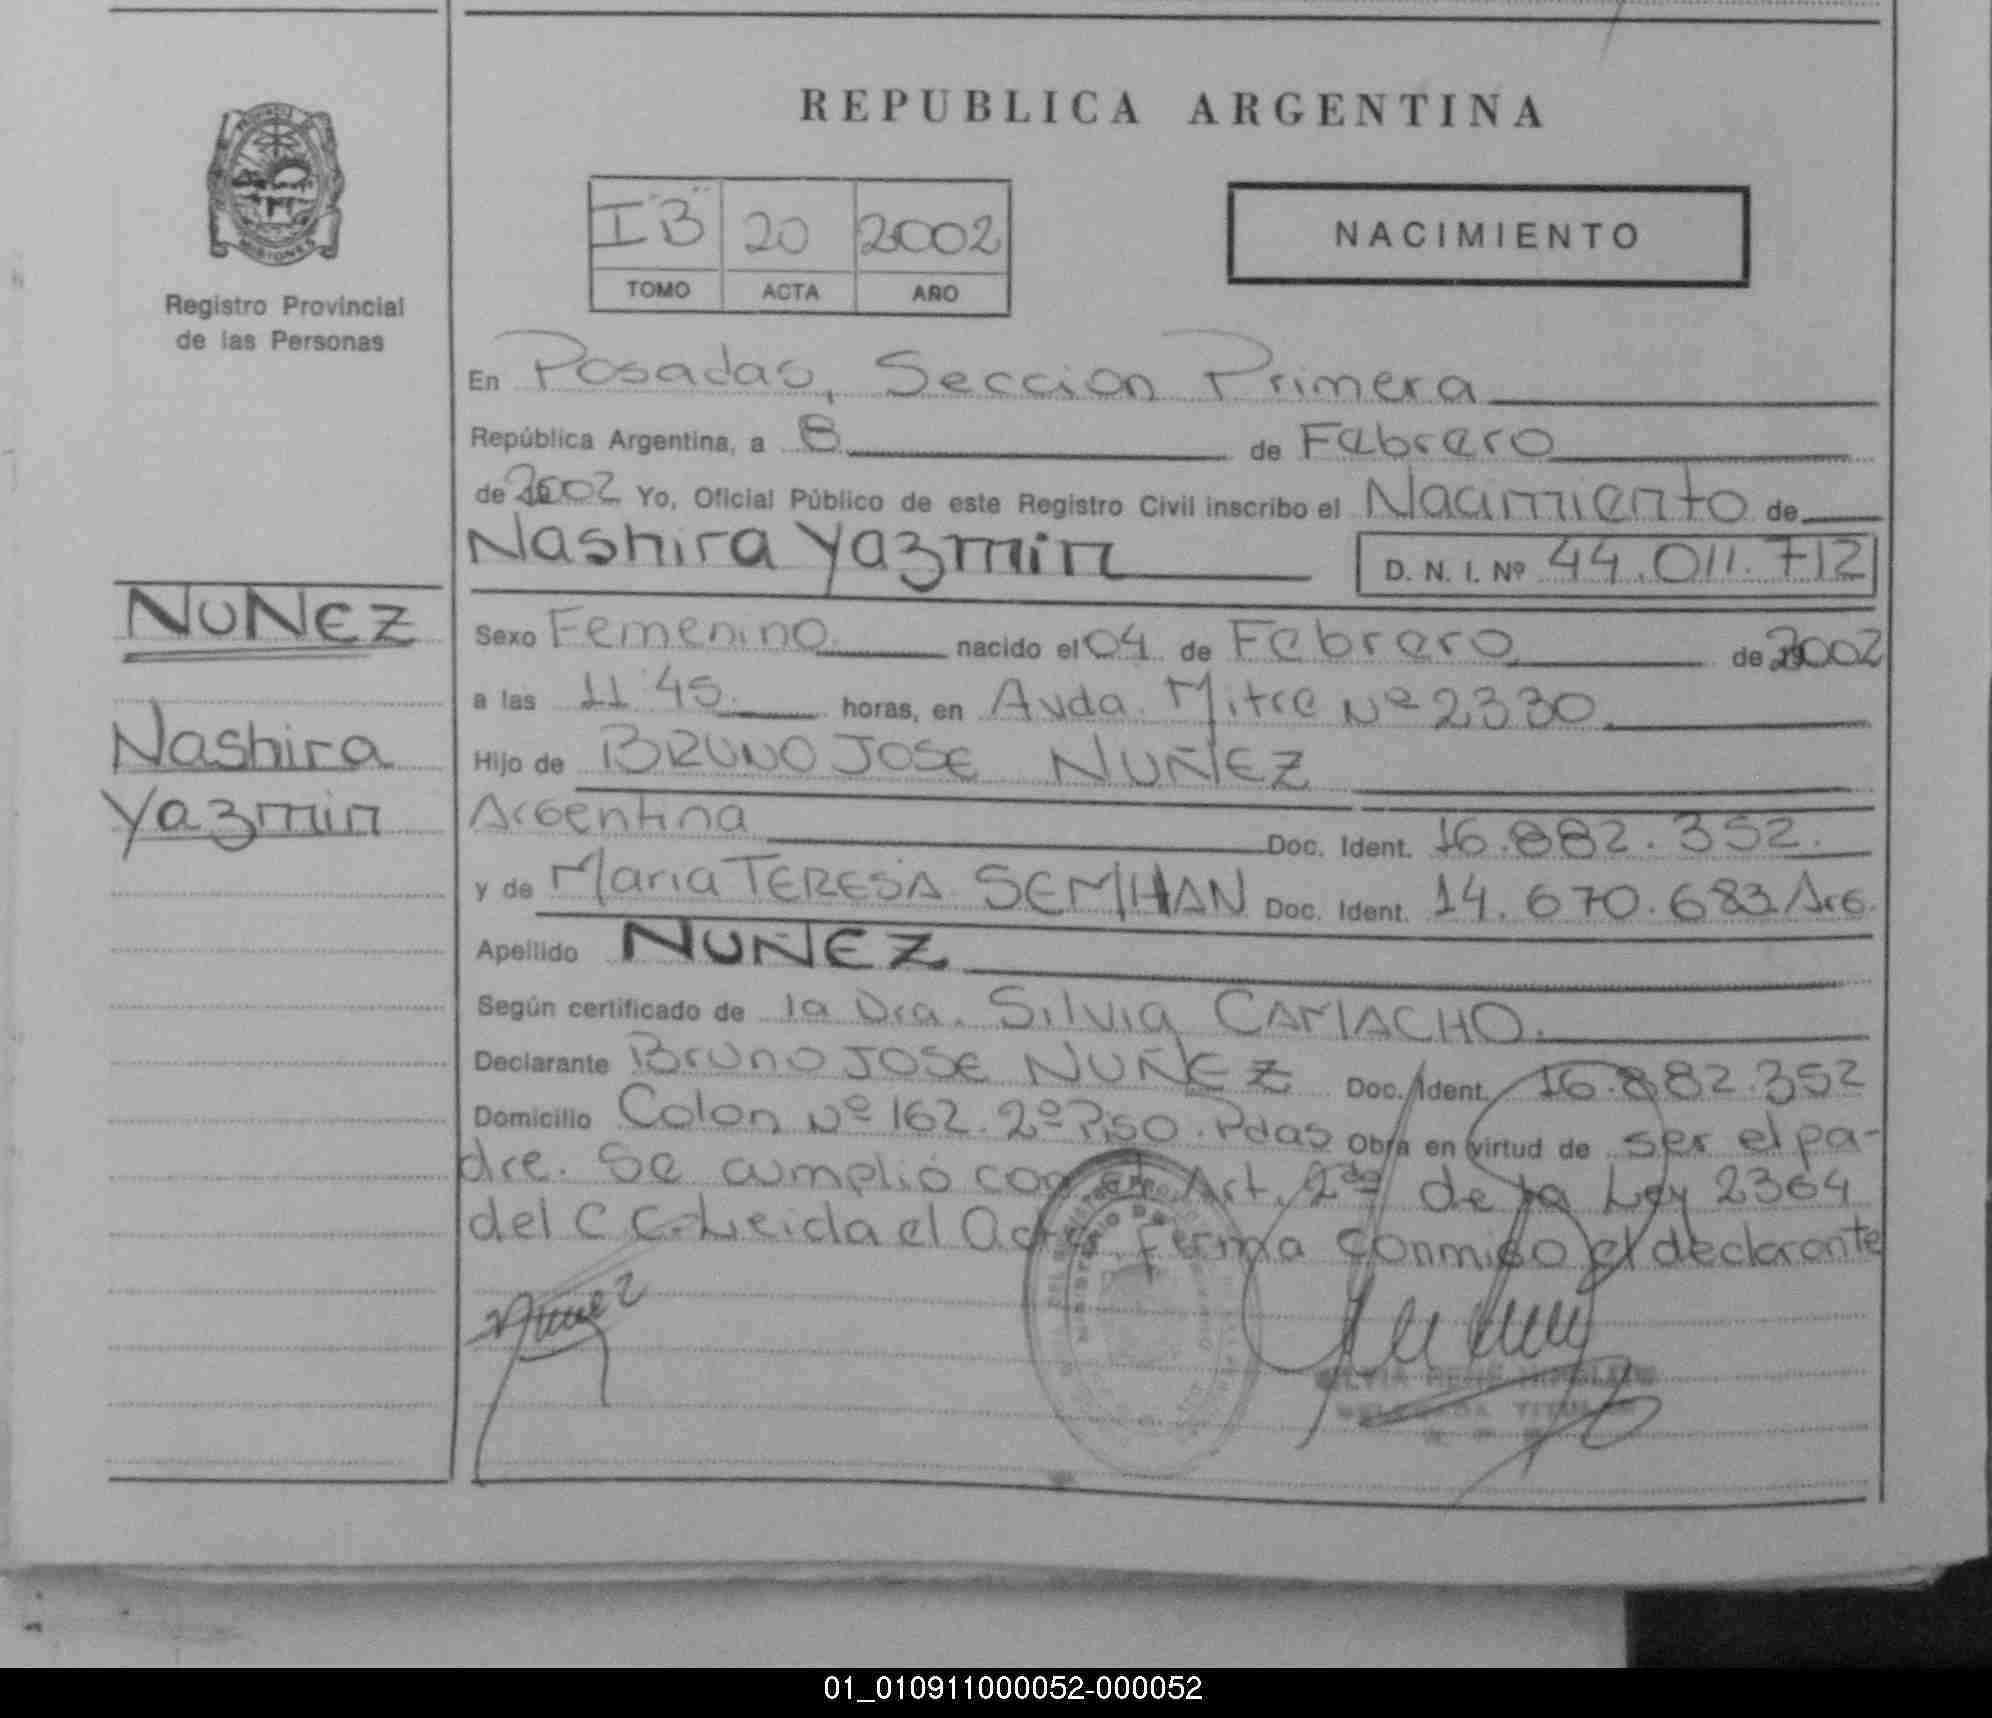 REPUBLICA ARGENTINA
MISIONES
Registro Provincial
de las Personas
I "B" 20 2002
TOMO ACTA AÑO
NACIMIENTO
En Posadas, Seccion Primera
República Argentina, a 8 de Febrero
de 2002 Yo, Oficial Público de este Registro Civil inscribo el Nacimiento de
Nashira Yazmin D. N. I. Nº 44.011.712
NUÑEZ
Nashira
Yazmin
Sexo Femenino nacido el 04 de Febrero de 2002
a las 11:45 horas, en Avda. Mitre Nº 2330
Hijo de BRUNO JOSE NUÑEZ
Argentina Doc. Ident. 16.882.352.
y de Maria TERESA SEMHAN Doc. Ident. 14.670.683 Arg.
Apellido NUÑEZ
Según certificado de la Dra. Silvia CAMACHO.
Declarante Bruno JOSE NUÑEZ Doc. Ident. 16.882.352
Domicilio Colon Nº 162. 2º Piso. Pdas Obra en virtud de ser el pa-
dre. Se cumplió con el Art. 2do de la Ley 2364
del C C. Leida el Acta, firma conmigo el declarante
Nuñez
TITULAR
01_010911000052-000052